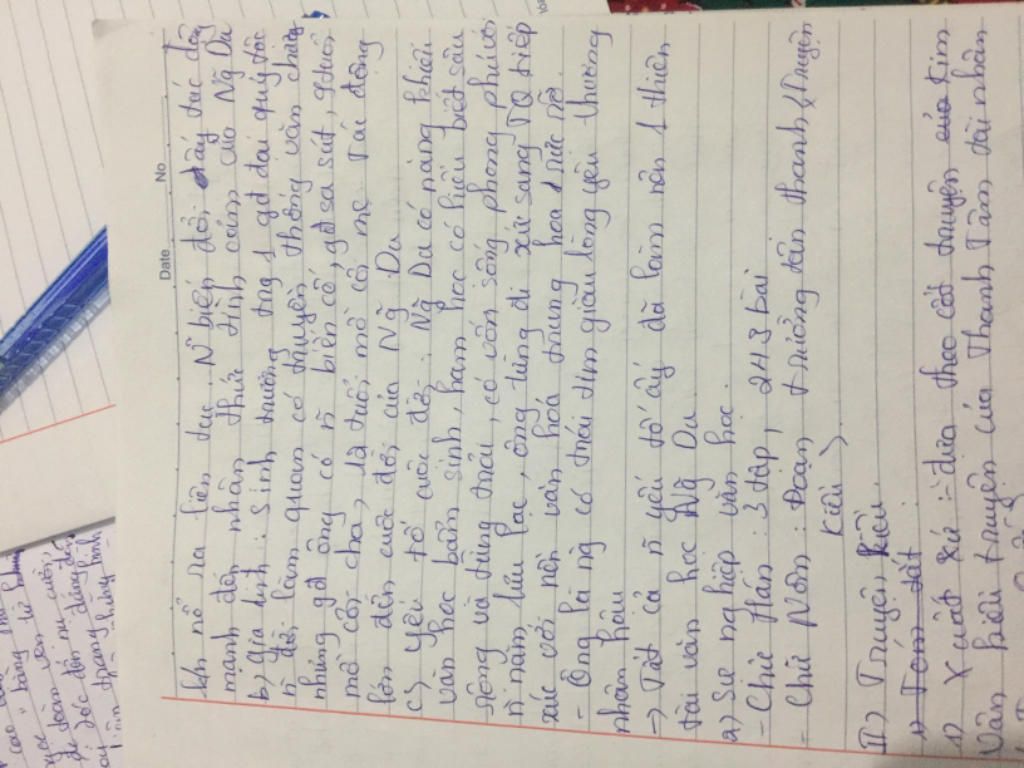 Date No
kh nổ ra liên tục. N~ biến đổi đấy tác động
mạnh đến nhận thức tình cảm của Ng~ Du
b) gia đình: Sinh trưởng trng 1 gđ đại quý tộc
n~ đời làm quan có truyền thống văn chương
nhưng gđ ông có n~ biến cố, gđ sa sút, 9 tuổi
mồ côi cha, 12 tuổi mồ côi mẹ Tác động
lớn đến cuộc đời của Ng~ Du
c) Yếu tố cuộc đời: Ng~ Du có năng khiếu
văn học bẩm sinh, ham học có hiểu biết sâu
rộng và từng trải, có vốn sống phong phú với
n~ năm lưu lạc, ông từng đi xứ sang TQ tiếp
xúc với nền văn hoá trung hoa rực rỡ
- Ông là ng có trái tim giàu lòng yêu thương
nhân hậu
-> Tất cả n~ yếu tố ấy đã làm nên 1 thiên
tài văn học Ng~ Du
2) Sự nghiệp văn học.
- Chữ Hán: 3 tập, 243 bài
- Chữ Nôm: Đoạn trường tân thanh (Truyện
Kiều)
II) Truyện Kiều.
1) Tóm tắt
1) Xuất xứ: dựa theo cốt truyện của Kim
Vân Kiều truyện của Thanh Tâm tài nhân